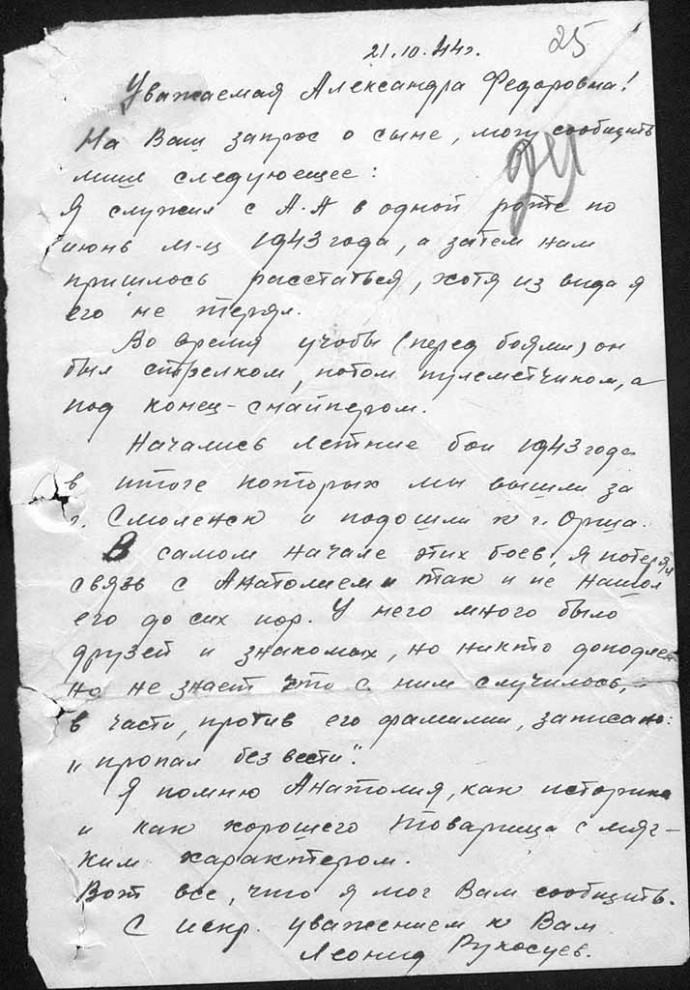 25
21.10.44г.
Уважаемая Александра Федоровна!
На Ваш запрос о сыне, могу сообщить
лишь следующее:
Я служил с А.А в одной роте по
июнь м-ц 1943 года, а затем нам
пришлось расстаться, хотя из вида я
его не терял.
Во время учобы (перед боями) он
был стрелком, потом пулеметчиком, а
под конец - снайпером.
Начались летние бои 1943 года
в итоге которых мы вышли за
г. Смоленск и подошли к г. Орша.
В самом начале этих боев, я потерял
связь с Анатолием и так и не нашол
его до сих пор. У него много было
друзей и знакомых, но никто доподлен
но не знает что с ним случилось,
в части, против его фамилии, записано:
„пропал без вести".
Я помню Анатолия, как историка
и как хорошего товарища с мяг-
ким характером.
Вот все, что я мог Вам сообщить.
С искр. уважением к Вам
Леонид Рукосуев.